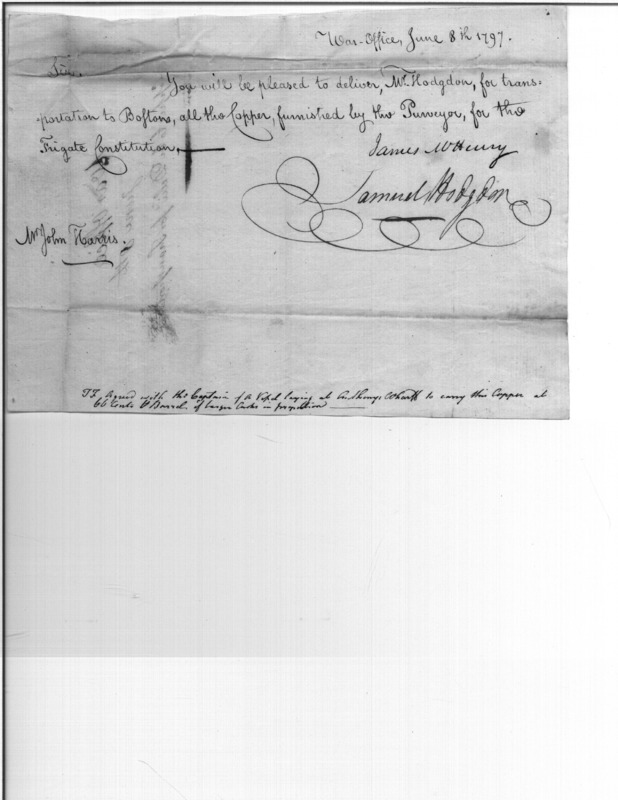 War-Office, June 8th 1797.
Sir,
You will be pleased to deliver, Mr Hodgdon, for trans=
portation to Boston, all the Copper, furnished by the Purveyor, for the
Frigate Constitution.
James McHenry
Samuel Hodgdon
Mr John Harris.
Agreed with the Captain of a Vessel laying at Anthonys Wharff to carry this Copper at
66 Cents P Barrel. if larger Casks in proportion